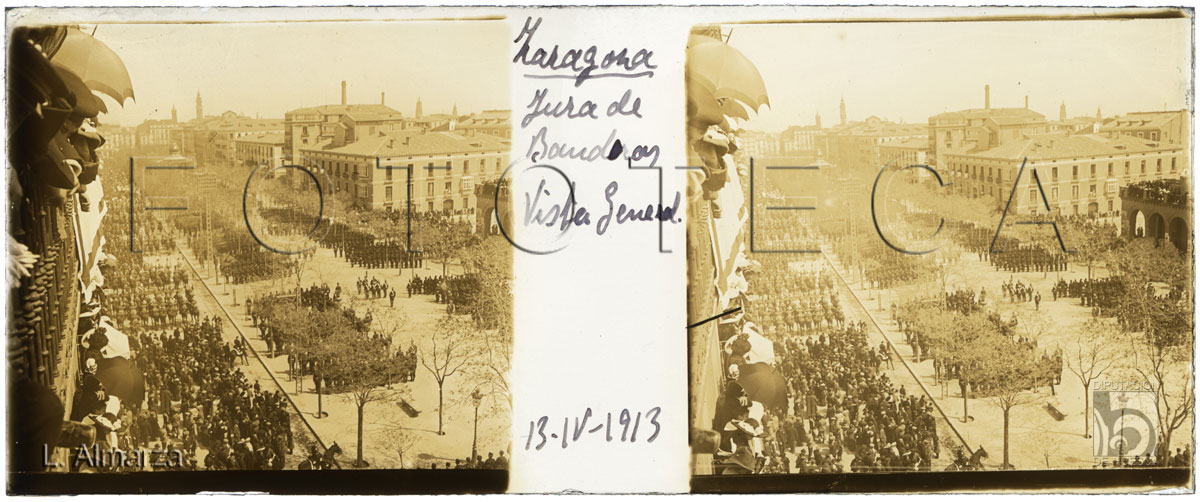 Zaragoza
Jura de
Banderas
Vista General.
13-IV-1913
FOTOTECA
L. Almarza
DIPUTACIÓN